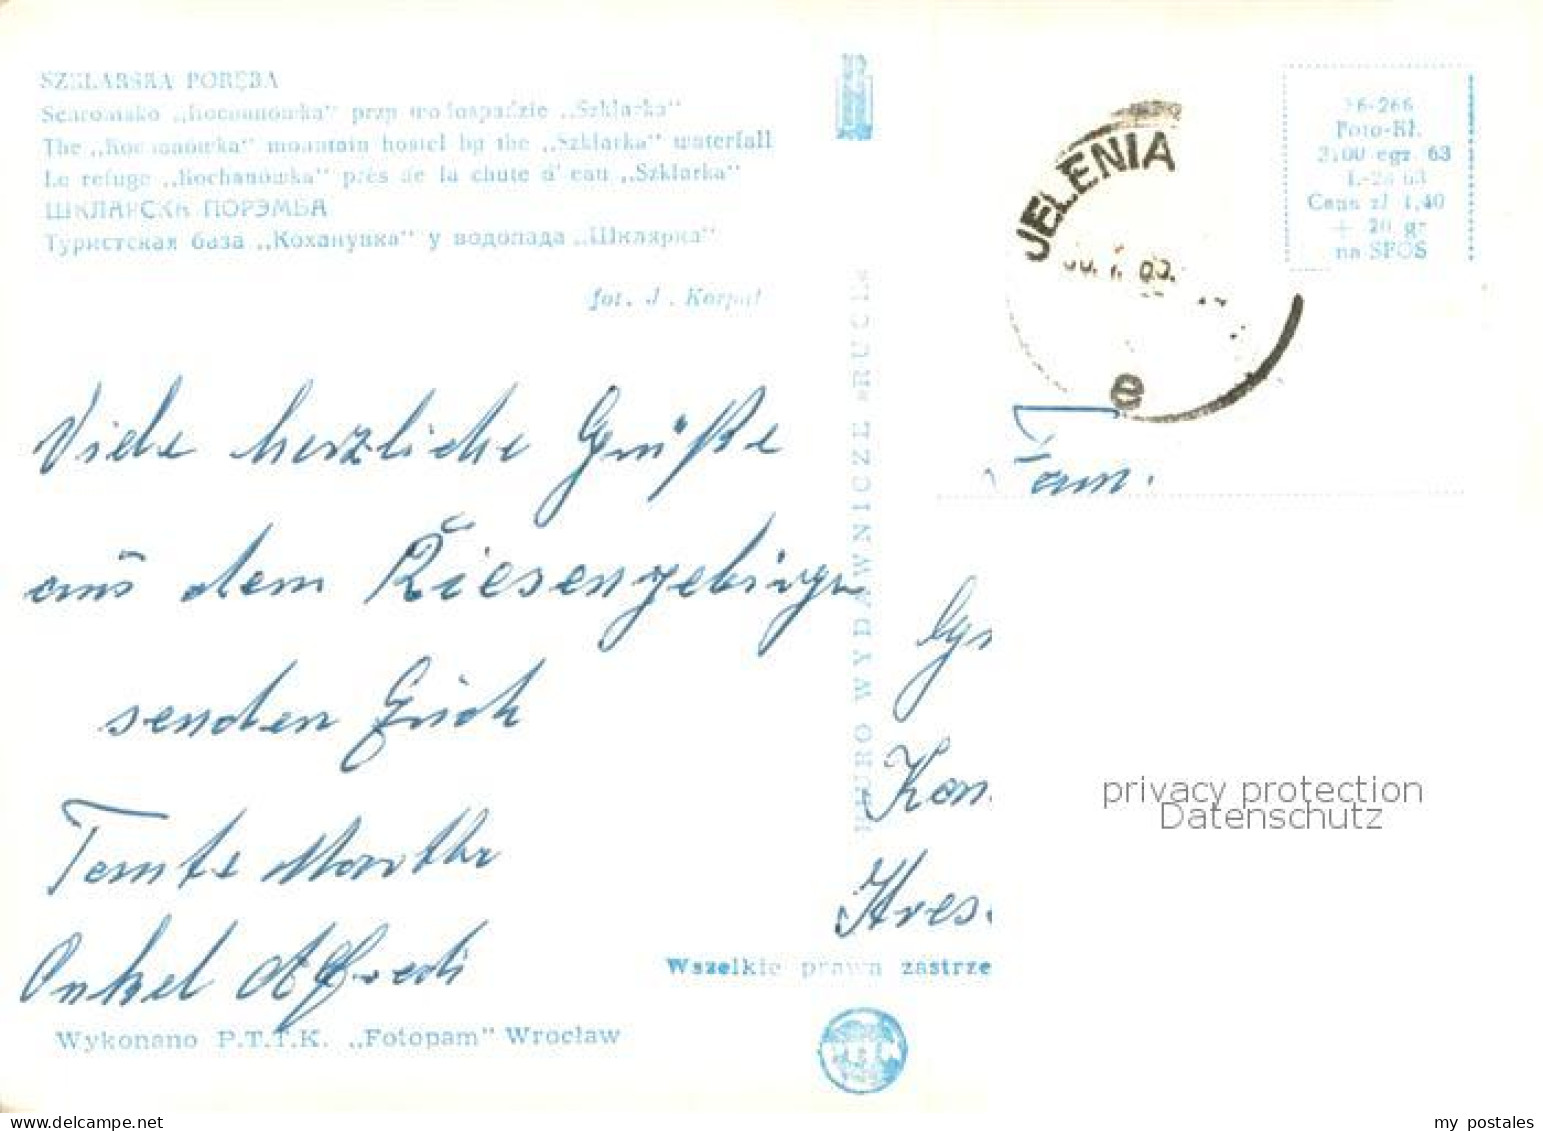 SZKLARSKA PORĘBA
Schronisko „Kochanówka" przy wodospadzie „Szklarka"
The „Kochanówka" mountain hostel by the „Szklarka" waterfall
Le refuge „Kochanówka" près de la chute d'eau „Szklarka"
ШКЛАРСКА ПОРЭМБА
Туристская база „Коханувка" у водопада „Шклярка"
fot. J. Korpal
Viele herzliche Grüße
aus dem Riesengebirge
senden Erich
Tante Marthe
Onkel Alfred
Wykonano P.T.T.K. „Fotopam" Wrocław
BIURO WYDAWNICZE „RUCH"
Wszelkie prawa zastrze
JELENIA
e
36-266
Foto-Kl.
egz. 63
Cena zł 1,40
+ 20 gr
na SFOS
Fam.
Kan
Kres
privacy protection
Datenschutz
www.delcampe.net
my_postales